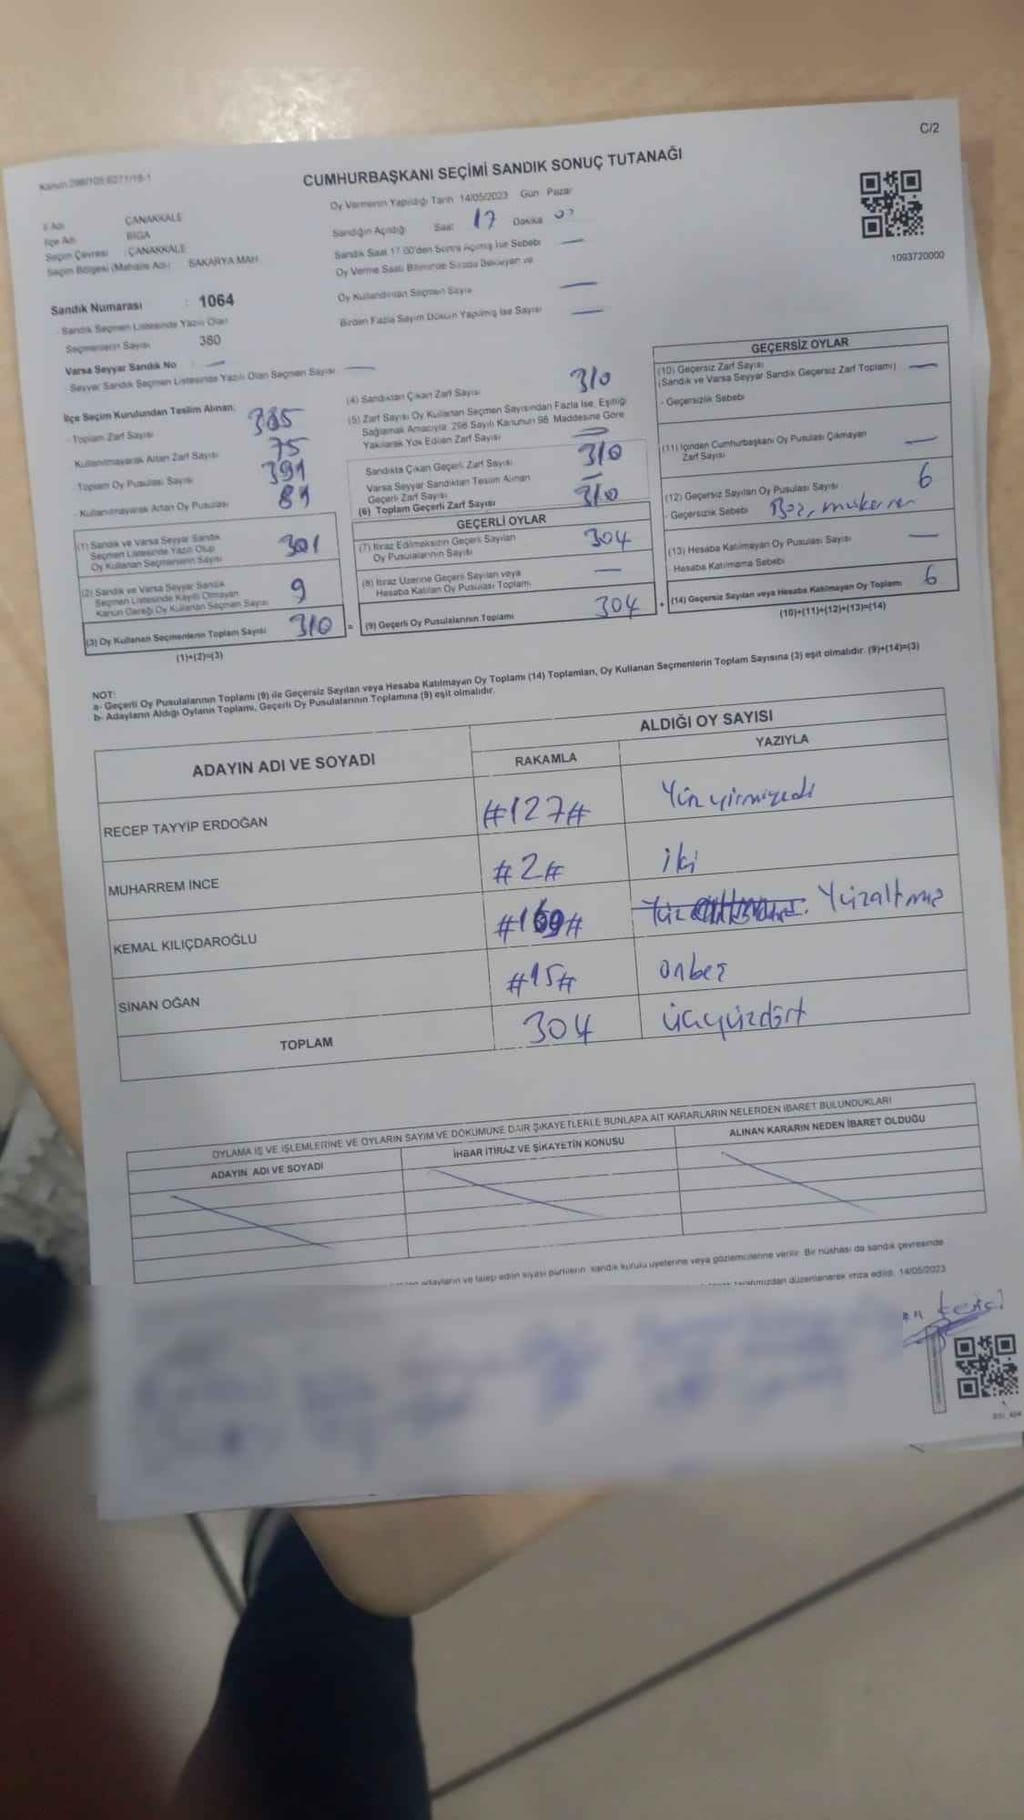 Kanun 298/105 6271/18-1
C/2
CUMHURBAŞKANI SEÇİMİ SANDIK SONUÇ TUTANAĞI
İl Adı ÇANAKKALE
İlçe Adı BİGA
Seçim Çevresi : ÇANAKKALE
Seçim Bölgesi (Mahalle Adı) : SAKARYA MAH.
Sandık Numarası : 1064
Sandık Seçmen Listesinde Yazılı Olan
Seçmenlerin Sayısı 380
Varsa Seyyar Sandık No —
Seyyar Sandık Seçmen Listesinde Yazılı Olan Seçmen Sayısı —
Oy Vermenin Yapıldığı Tarih 14/05/2023 Gün Pazar
Sandığın Açıldığı Saat 17 Dakika
Sandık Saat 17.00'den Sonra Açılmış İse Sebebi —
Oy Verme Saati Bitiminde Sırada Bekleyen ve
Oy Kullandırılan Seçmen Sayısı —
Birden Fazla Sayım Döküm Yapılmış İse Sayısı —
1093720000
İlçe Seçim Kurulundan Teslim Alınan;
- Toplam Zarf Sayısı 385
Kullanılmayarak Artan Zarf Sayısı 75
- Toplam Oy Pusulası Sayısı 391
- Kullanılmayarak Artan Oy Pusulası 81
(1) Sandık ve Varsa Seyyar Sandık
Seçmen Listesinde Yazılı Olup
Oy Kullanan Seçmenlerin Sayısı 301
(2) Sandık ve Varsa Seyyar Sandık
Seçmen Listesinde Kayıtlı Olmayan
Kanun Gereği Oy Kullanan Seçmen Sayısı 9
(3) Oy Kullanan Seçmenlerin Toplam Sayısı 310 =
(1)+(2)=(3)
(4) Sandıktan Çıkan Zarf Sayısı 310
(5) Zarf Sayısı Oy Kullanan Seçmen Sayısından Fazla İse, Eşitliği
Sağlamak Amacıyla, 298 Sayılı Kanunun 98. Maddesine Göre
Yakılarak Yok Edilen Zarf Sayısı —
Sandıkta Çıkan Geçerli Zarf Sayısı 310
Varsa Seyyar Sandıktan Teslim Alınan
Geçerli Zarf Sayısı —
(6) Toplam Geçerli Zarf Sayısı 310
GEÇERLİ OYLAR
(7) İtiraz Edilmeksizin Geçerli Sayılan
Oy Pusulalarının Sayısı 304
(8) İtiraz Üzerine Geçerli Sayılan veya
Hesaba Katılan Oy Pusulası Toplamı —
(9) Geçerli Oy Pusulalarının Toplamı 304 +
GEÇERSİZ OYLAR
(10) Geçersiz Zarf Sayısı
(Sandık ve Varsa Seyyar Sandık Geçersiz Zarf Toplamı) —
- Geçersizlik Sebebi
(11) İçinden Cumhurbaşkanı Oy Pusulası Çıkmayan
Zarf Sayısı —
(12) Geçersiz Sayılan Oy Pusulası Sayısı 6
- Geçersizlik Sebebi Boz, mükerrer
(13) Hesaba Katılmayan Oy Pusulası Sayısı —
Hesaba Katılmama Sebebi
(14) Geçersiz Sayılan veya Hesaba Katılmayan Oy Toplamı 6
(10)+(11)+(12)+(13)=(14)
NOT:
a- Geçerli Oy Pusulalarının Toplamı (9) ile Geçersiz Sayılan veya Hesaba Katılmayan Oy Toplamı (14) Toplamları, Oy Kullanan Seçmenlerin Toplam Sayısına (3) eşit olmalıdır. (9)+(14)=(3)
b- Adayların Aldığı Oyların Toplamı, Geçerli Oy Pusulalarının Toplamına (9) eşit olmalıdır.
ADAYIN ADI VE SOYADI
ALDIĞI OY SAYISI
RAKAMLA YAZIYLA
RECEP TAYYİP ERDOĞAN #127# Yüzyirmiyedi
MUHARREM İNCE #2# iki
KEMAL KILIÇDAROĞLU #160# Yüzaltmış
SİNAN OĞAN #15# onbeş
TOPLAM 304 üçyüzdört
OYLAMA İŞ VE İŞLEMLERİNE VE OYLARIN SAYIM VE DÖKÜMÜNE DAİR ŞİKAYETLERLE BUNLARA AİT KARARLARIN NELERDEN İBARET BULUNDUKLARI
ADAYIN ADI VE SOYADI İHBAR İTİRAZ VE ŞİKAYETİN KONUSU ALINAN KARARIN NEDEN İBARET OLDUĞU
adayların ve talep eden siyasi partilerin sandık kurulu üyelerine veya gözlemcilerine verilir. Bir nüshası da sandık çevresinde
tarafımızdan düzenlenerek imza edildi. 14/05/2023